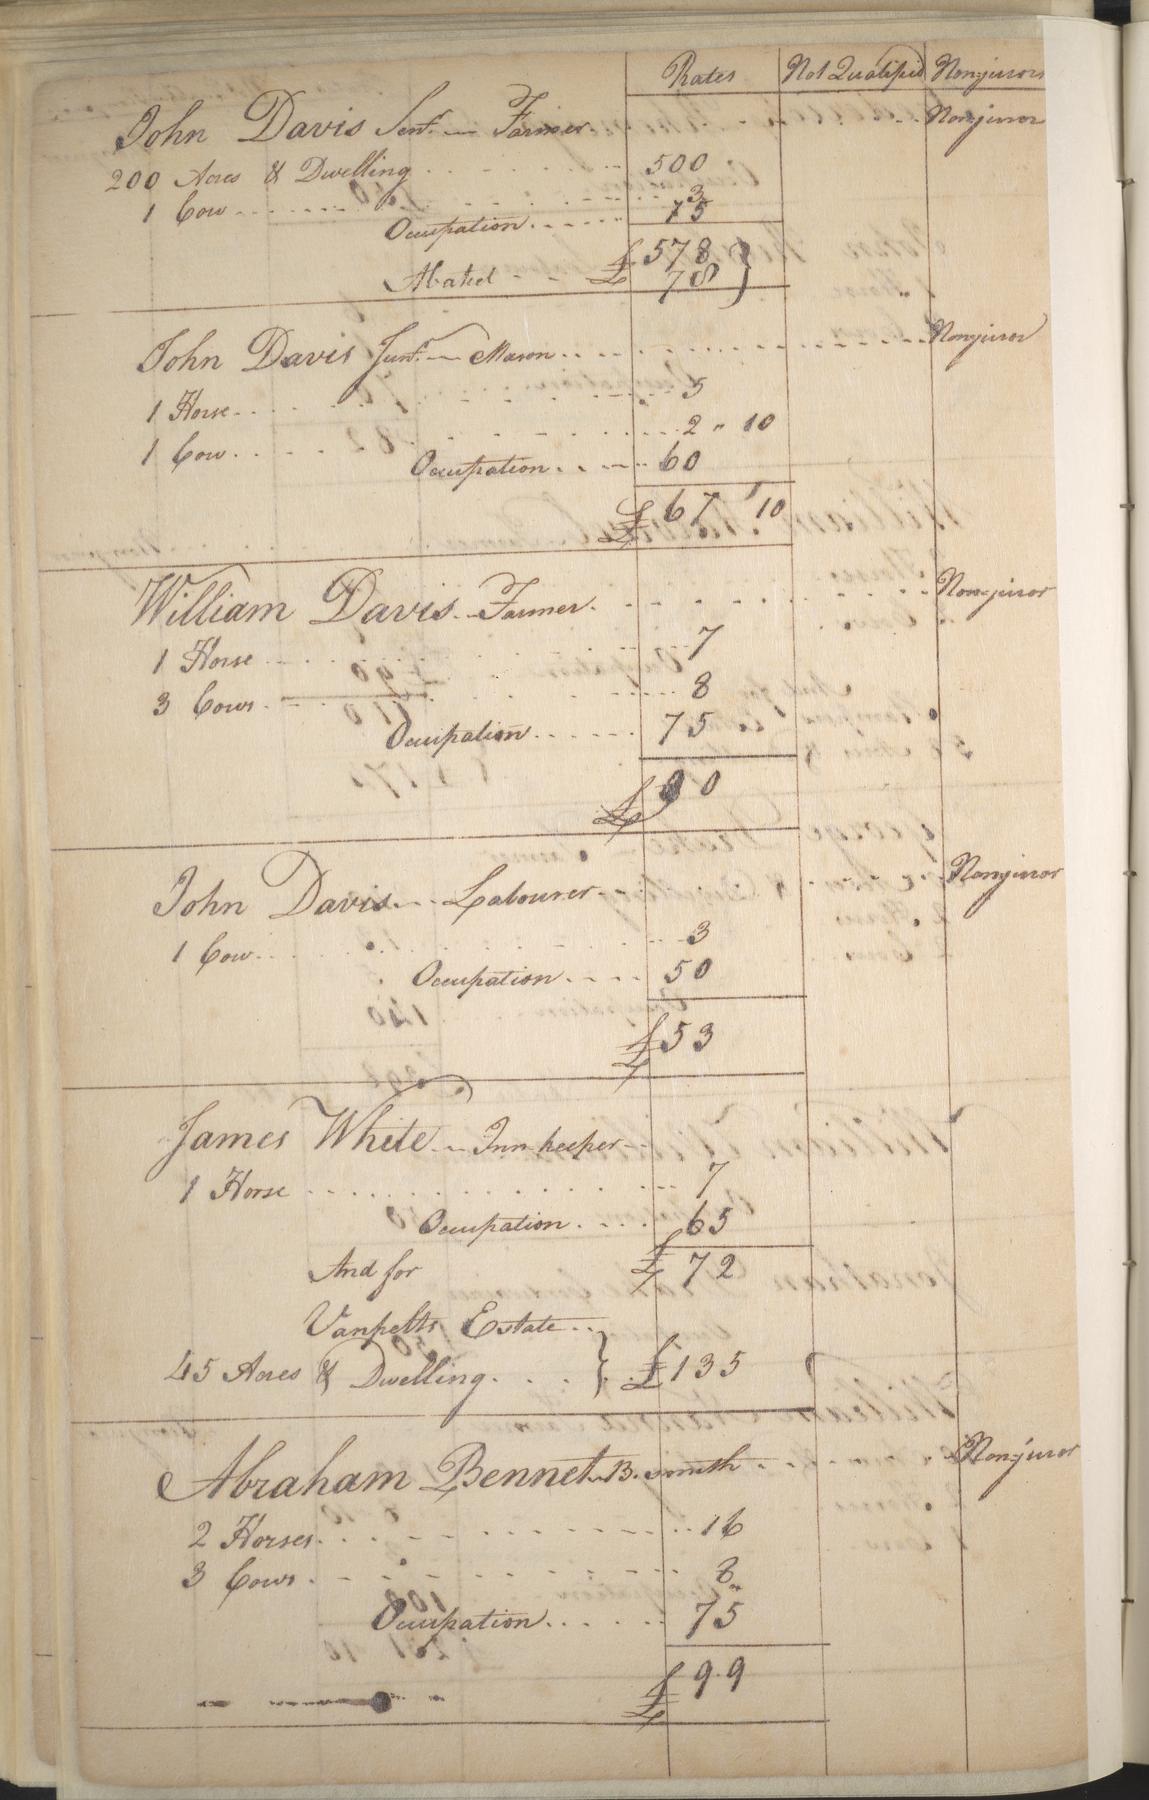 Rates Not Qualified Nonjurors
John Davis Senr. Farmer Nonjuror
200 Acres & Dwelling 500
1 Cow 3
Occupation 75
£ 578
Abated 78
John Davis Junr. Mason Nonjuror
1 Horse 5
1 Cow 2 " 10
Occupation 60
£ 67 10
William Davis Farmer Non-juror
1 Horse 7
3 Cows 8
Occupation 75
£ 90
John Davis Labourer Nonjuror
1 Cow 3
Occupation 50
£ 53
James White Inn keeper
1 Horse 7
Occupation 65
£ 72
And for
Vanpelts Estate
45 Acres & Dwelling } £ 135
Abraham Bennet B. smith Nonjuror
2 Horses 16
3 Cows 8
Occupation 75
£ 99